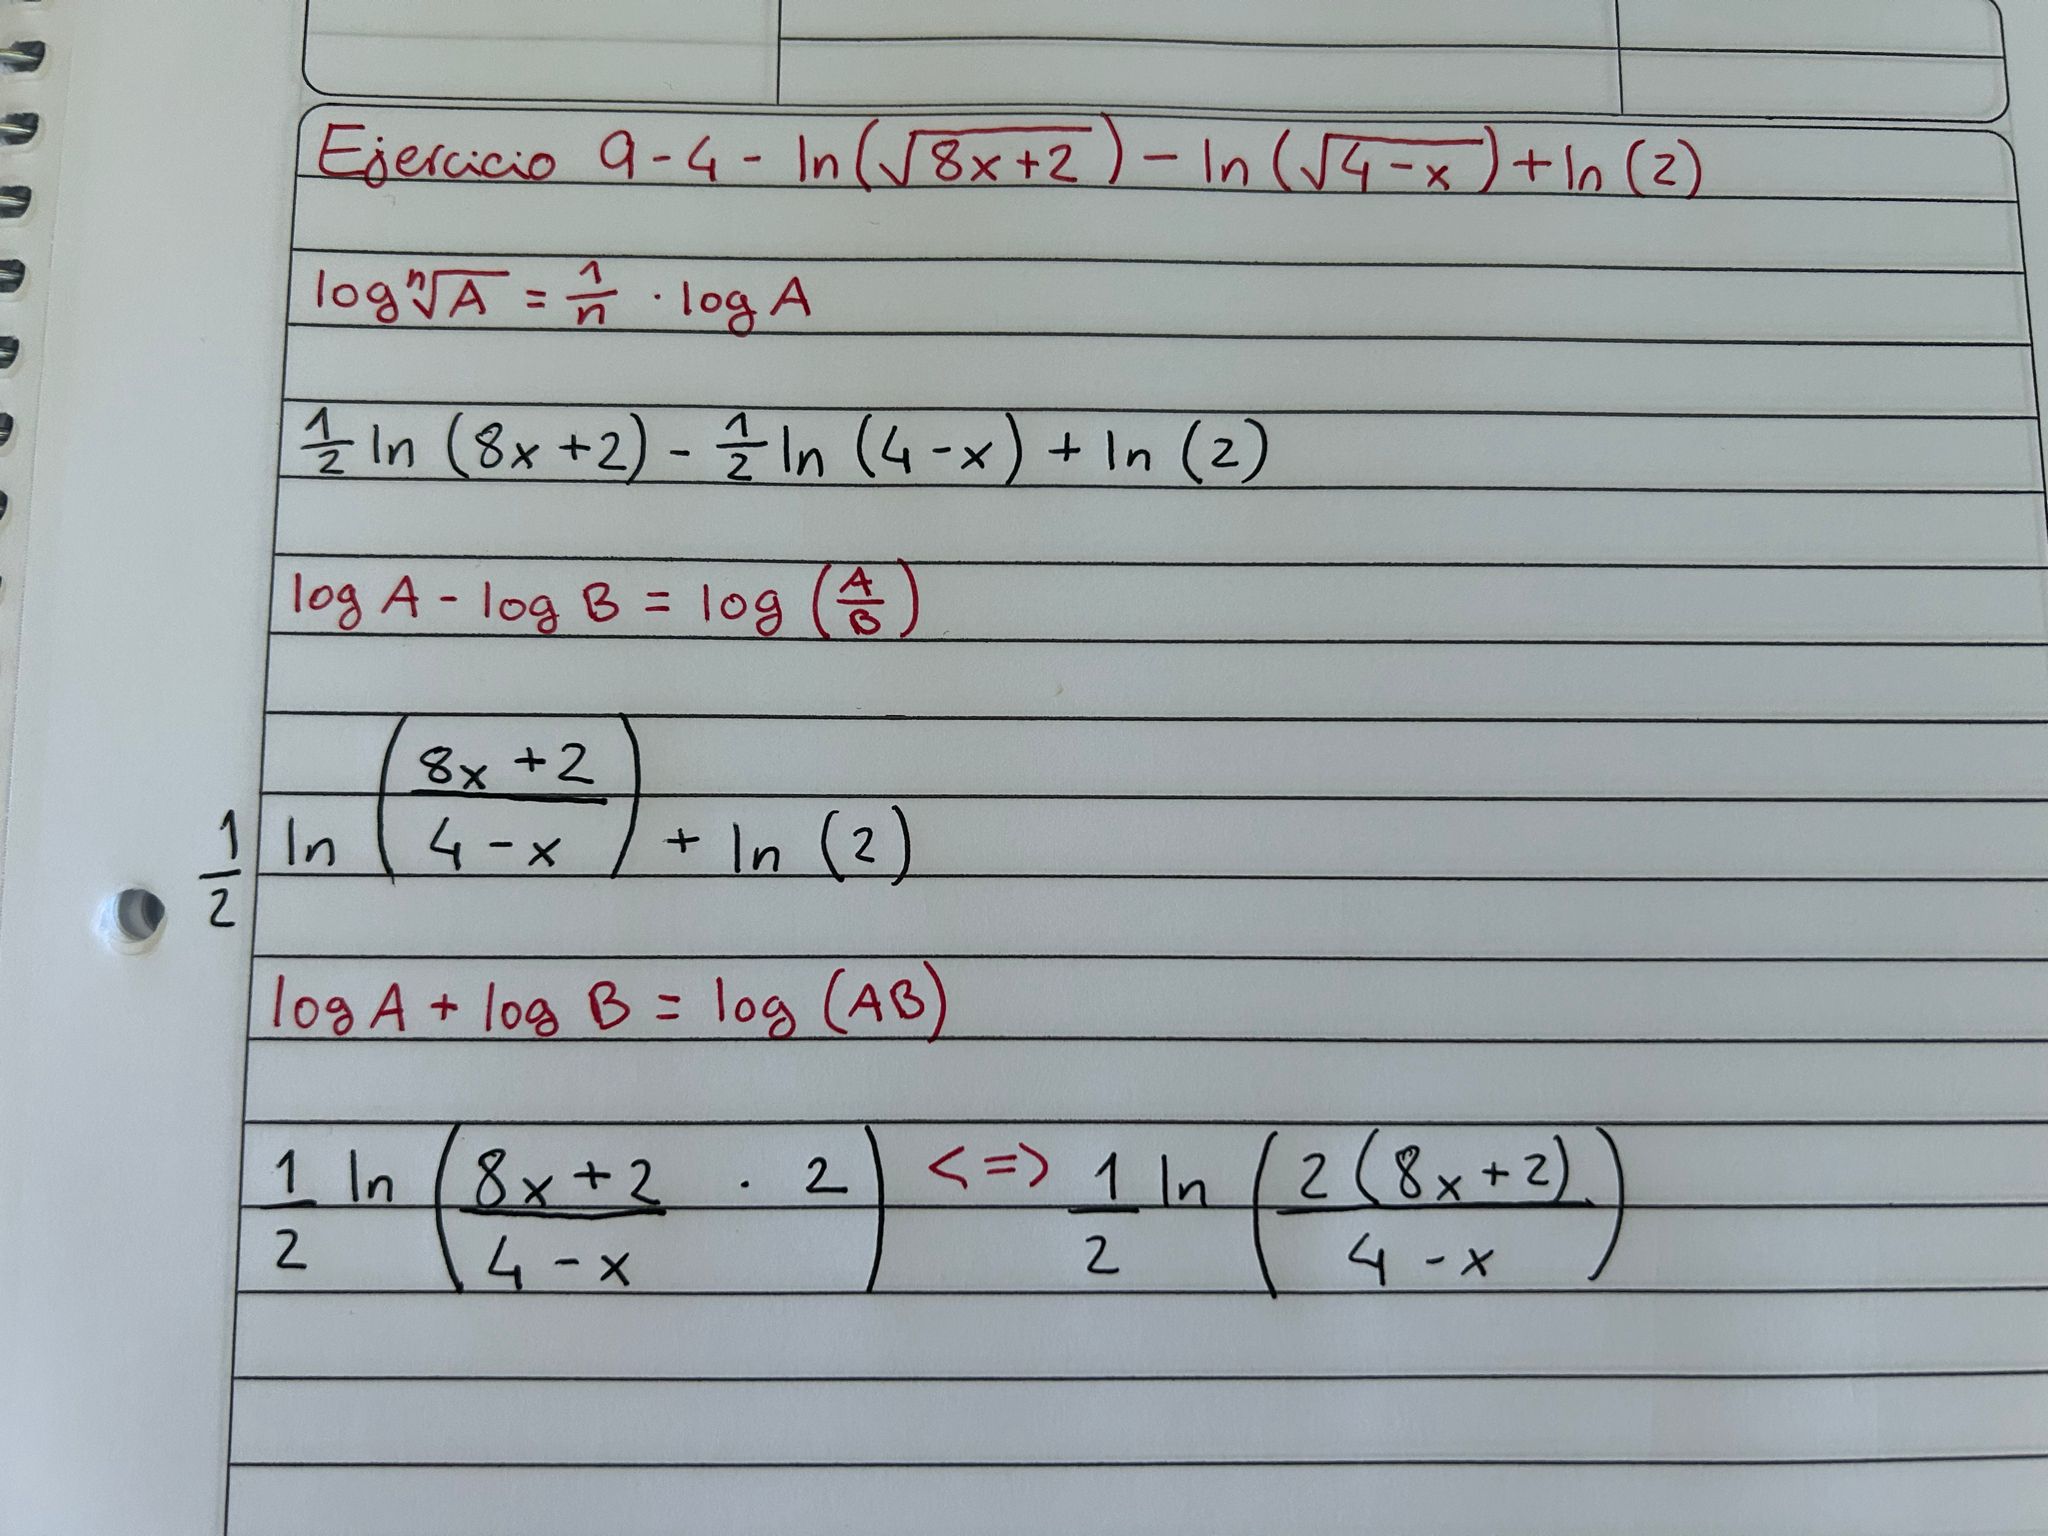 Ejercicio 9-4- ln(√(8x+2)) - ln(√(4-x)) + ln(2)
log ⁿ√A = 1/n · log A
1/2 ln (8x+2) - 1/2 ln (4-x) + ln (2)
log A - log B = log (A/B)
1/2 ln ((8x+2)/(4-x)) + ln (2)
log A + log B = log (AB)
1/2 ln ((8x+2)/(4-x) · 2) <=> 1/2 ln (2(8x+2)/(4-x))